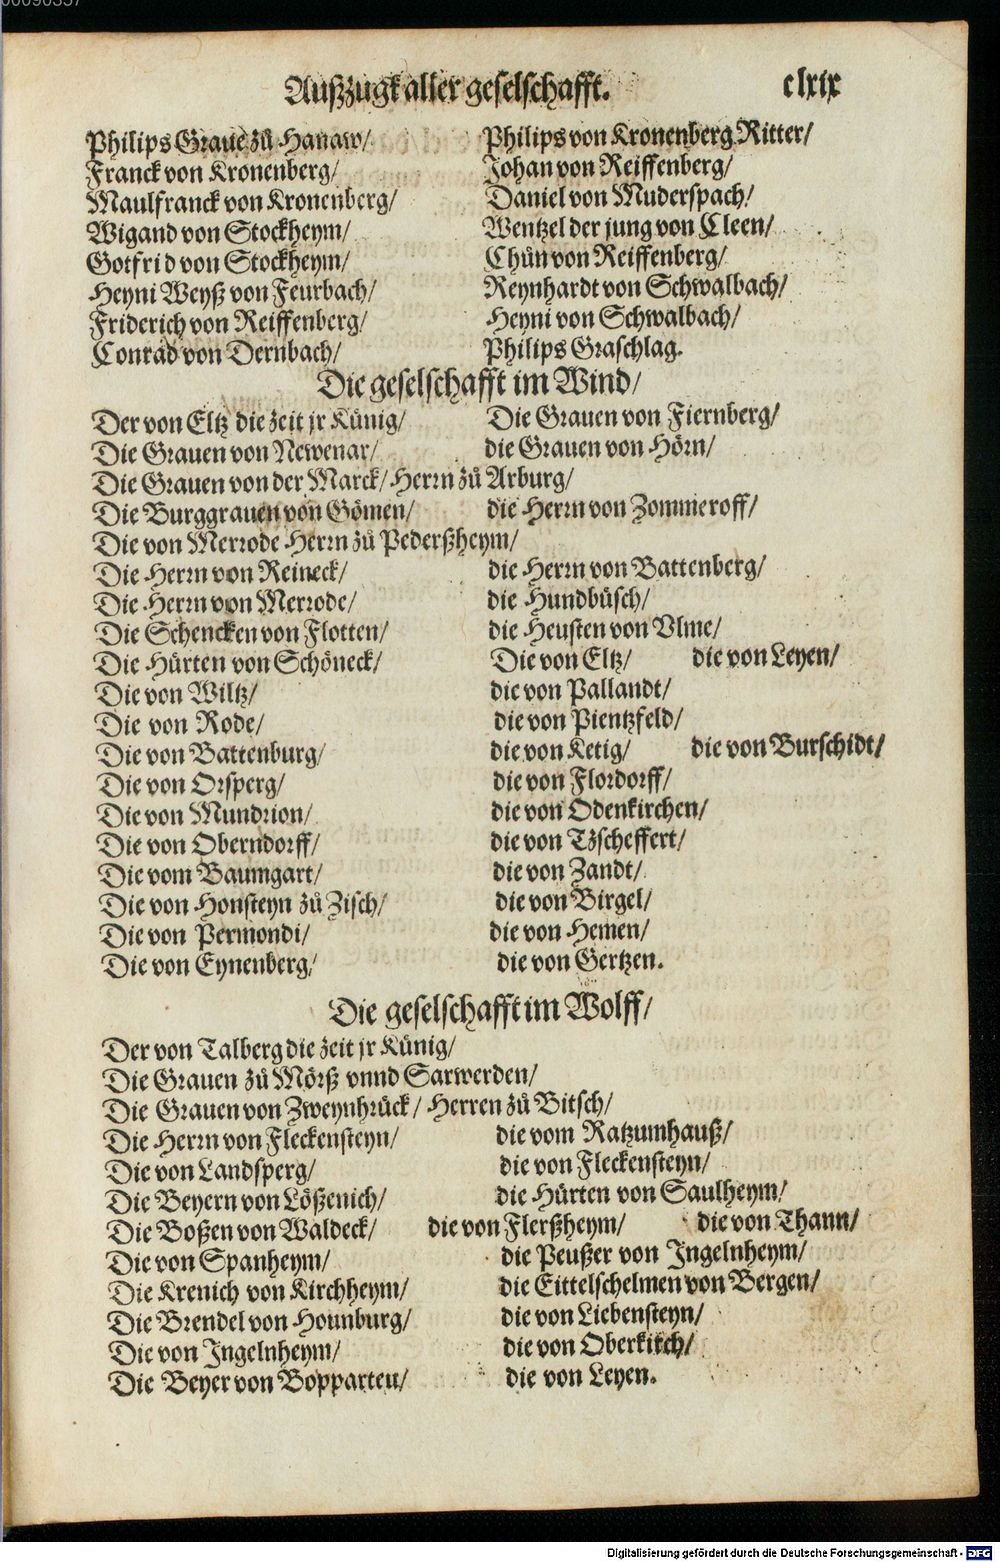 Außzugk aller geselschafft. clxix
Philips Graue zů Hanaw/ Philips von Kronenberg Ritter/
Franck von Kronenberg/ Johan von Reiffenberg/
Maulfranck von Kronenberg/ Daniel von Muderspach/
Wigand von Stockheym/ Wentzel der jung von Cleen/
Gotfrid von Stockheym/ Chůn von Reiffenberg/
Heyni Weyß von Feurbach/ Reynhardt von Schwalbach/
Friderich von Reiffenberg/ Heyni von Schwalbach/
Conrad von Dernbach/ Philips Graschlag.
Die geselschafft im Wind/
Der von Eltz die zeit jr Künig/ Die Grauen von Fiernberg/
Die Grauen von Newenar/ die Grauen von Hörn/
Die Grauen von der Marck/ Herrn zů Arburg/
Die Burggrauen von Gömen/ die Herrn von Zommeroff/
Die von Merrode Herrn zů Pederßheym/
Die Herrn von Reineck/ die Herrn von Battenberg/
Die Herrn von Merrode/ die Hundbüsch/
Die Schencken von Flotten/ die Heusten von Vlme/
Die Hürten von Schöneck/ Die von Eltz/ die von Leyen/
Die von Wiltz/ die von Pallandt/
Die von Rode/ die von Pientzfeld/
Die von Battenburg/ die von Ketig/ die von Burschidt/
Die von Orsperg/ die von Flordorff/
Die von Mundrion/ die von Odenkirchen/
Die von Oberndorff/ die von Tzscheffert/
Die vom Baumgart/ die von Zandt/
Die von Honsteyn zů Zisch/ die von Birgel/
Die von Permondi/ die von Hemen/
Die von Eynenberg/ die von Gertzen.
Die geselschafft im Wolff/
Der von Talberg die zeit jr Künig/
Die Grauen zů Mörß vnnd Sarwerden/
Die Grauen von Zweynhrück/ Herren zů Bitsch/
Die Herrn von Fleckensteyn/ die vom Ratzumhauß/
Die von Landsperg/ die von Fleckensteyn/
Die Beyern von Lößenich/ die Hürten von Saulheym/
Die Boßen von Waldeck/ die von Flerßheym/ die von Thann/
Die von Spanheym/ die Peußer von Ingelnheym/
Die Krenich von Kirchheym/ die Eittelschelmen von Bergen/
Die Brendel von Hounburg/ die von Liebensteyn/
Die von Ingelnheym/ die von Oberkirch/
Die Beyer von Bopparteu/ die von Leyen.
Digitalisierung gefördert durch die Deutsche Forschungsgemeinschaft - DFG